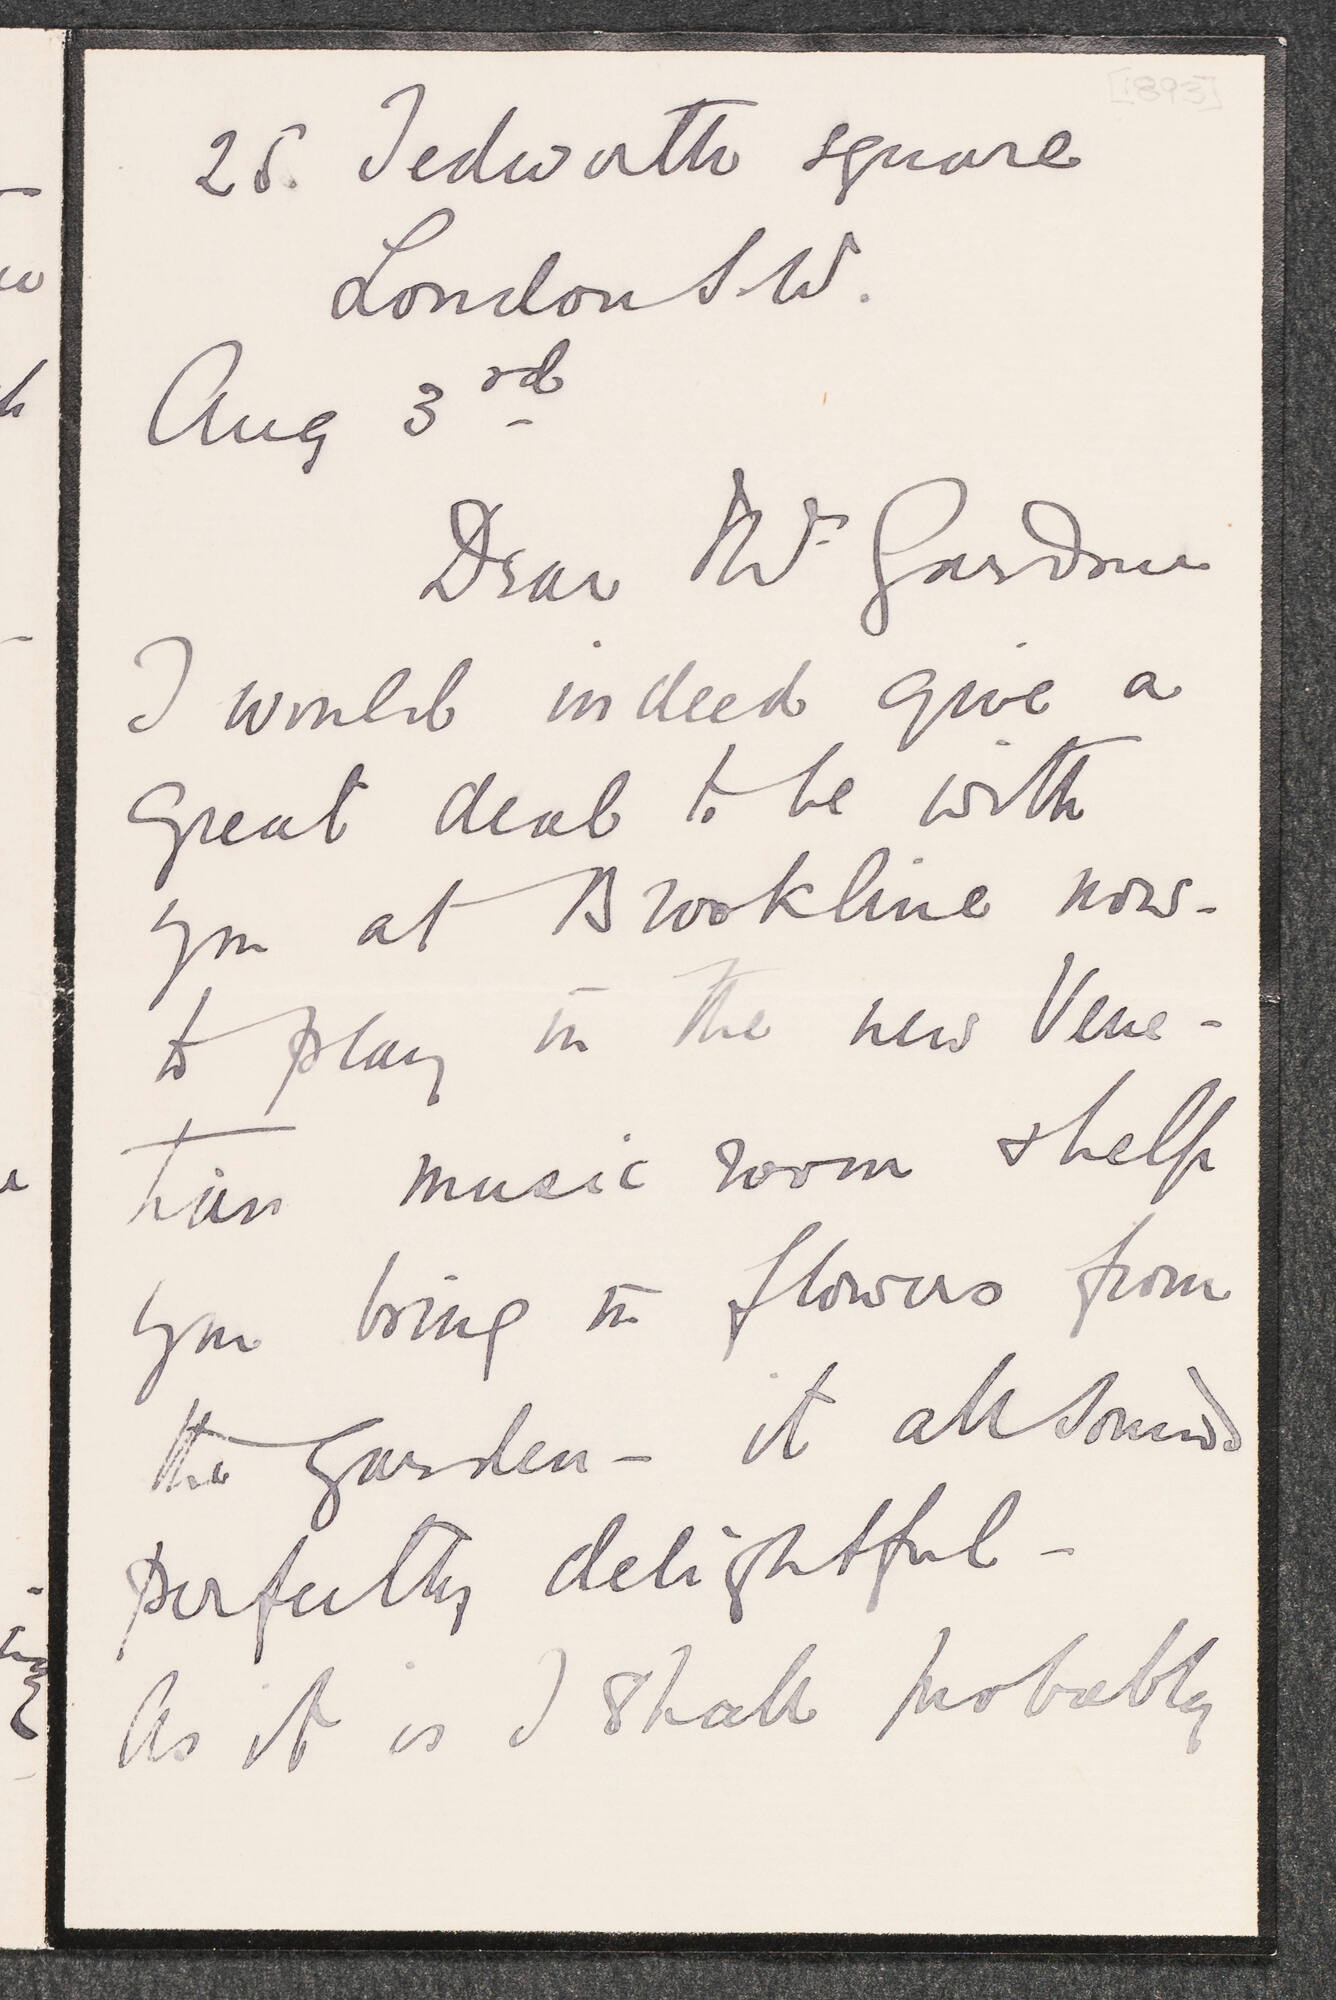 [1893]
25. Tedworth square
London S.W.
Aug 3rd
Dear Mrs Gardner
I would indeed give a
great deal to be with
you at Brookline now-
to play in the new Vene-
tian music room & help
you bring in flowers from
the garden - it all sounds
perfectly delightful -
As it is I shall probably